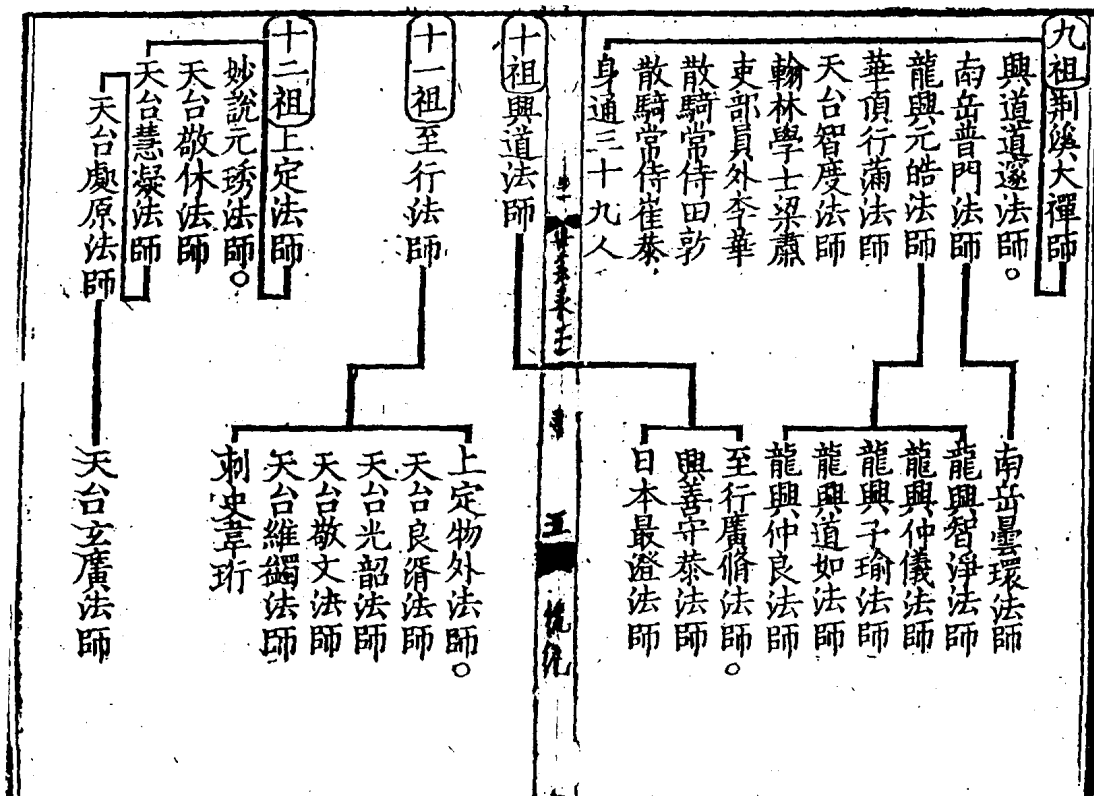 九祖荆溪大禪師
興道道邃法師。
南岳普門法師
龍興元皓法師
華頂行滿法師
天台智度法師
翰林學士梁肅
吏部員外李華
散騎常侍田敦
散騎常侍崔恭
身通三十九人
南岳曇環法師
龍興智淨法師
龍興仲儀法師
龍興子瑜法師
龍興道如法師
龍興仲良法師
至行廣脩法師。
興善守恭法師
日本最澄法師
十祖興道法師
十一祖至行法師
上定物外法師。
天台良湑法師
天台光韶法師
天台敬文法師
天台維蠲法師
刺史韋珩
十二祖上定法師
妙說元琇法師。
天台敬休法師
天台慧凝法師
天台處原法師
天台玄廣法師